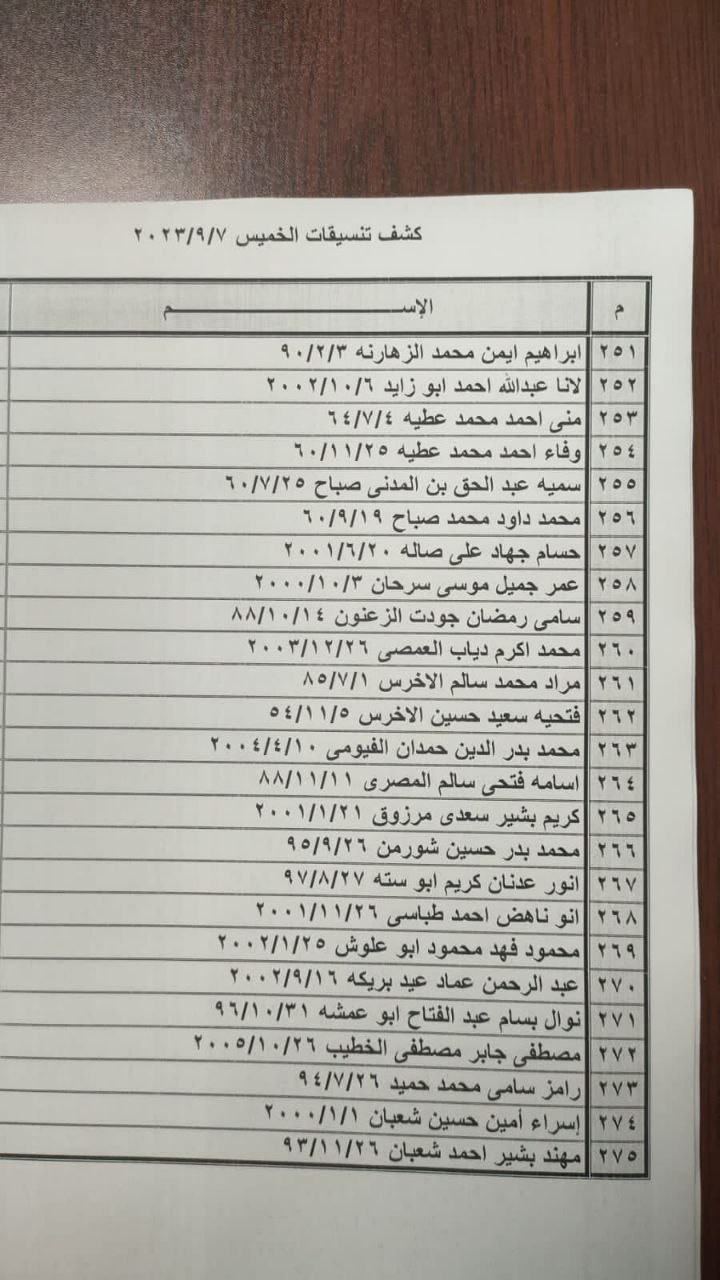 كشف تنسيقات الخميس ٢٠٢٣/٩/٧
م الإســـــــــــــــــــم
٢٥١ ابراهيم ايمن محمد الزهارنه ٩٠/٢/٣
٢٥٢ لانا عبدالله احمد ابو زايد ٢٠٠٢/١٠/٦
٢٥٣ منى احمد محمد عطيه ٦٤/٧/٤
٢٥٤ وفاء احمد محمد عطيه ٦٠/١١/٢٥
٢٥٥ سميه عبد الحق بن المدنى صباح ٦٠/٧/٢٥
٢٥٦ محمد داود محمد صباح ٦٠/٩/١٩
٢٥٧ حسام جهاد على صاله ٢٠٠١/٦/٢٠
٢٥٨ عمر جميل موسى سرحان ٢٠٠٠/١٠/٣
٢٥٩ سامى رمضان جودت الزعنون ٨٨/١٠/١٤
٢٦٠ محمد اكرم دياب العمصى ٢٠٠٣/١٢/٢٦
٢٦١ مراد محمد سالم الاخرس ٨٥/٧/١
٢٦٢ فتحيه سعيد حسين الاخرس ٥٤/١١/٥
٢٦٣ محمد بدر الدين حمدان الفيومى ٢٠٠٤/٤/١٠
٢٦٤ اسامه فتحى سالم المصرى ٨٨/١١/١١
٢٦٥ كريم بشير سعدى مرزوق ٢٠٠١/١/٢١
٢٦٦ محمد بدر حسين شورمن ٩٥/٩/٢٦
٢٦٧ انور عدنان كريم ابو سته ٩٧/٨/٢٧
٢٦٨ انو ناهض احمد طباسى ٢٠٠١/١١/٢٦
٢٦٩ محمود فهد محمود ابو علوش ٢٠٠٢/١/٢٥
٢٧٠ عبد الرحمن عماد عيد بريكه ٢٠٠٢/٩/١٦
٢٧١ نوال بسام عبد الفتاح ابو عمشه ٩٦/١٠/٣١
٢٧٢ مصطفى جابر مصطفى الخطيب ٢٠٠٥/١٠/٢٦
٢٧٣ رامز سامى محمد حميد ٩٤/٧/٢٦
٢٧٤ إسراء أمين حسين شعبان ٢٠٠٠/١/١
٢٧٥ مهند بشير احمد شعبان ٩٣/١١/٢٦